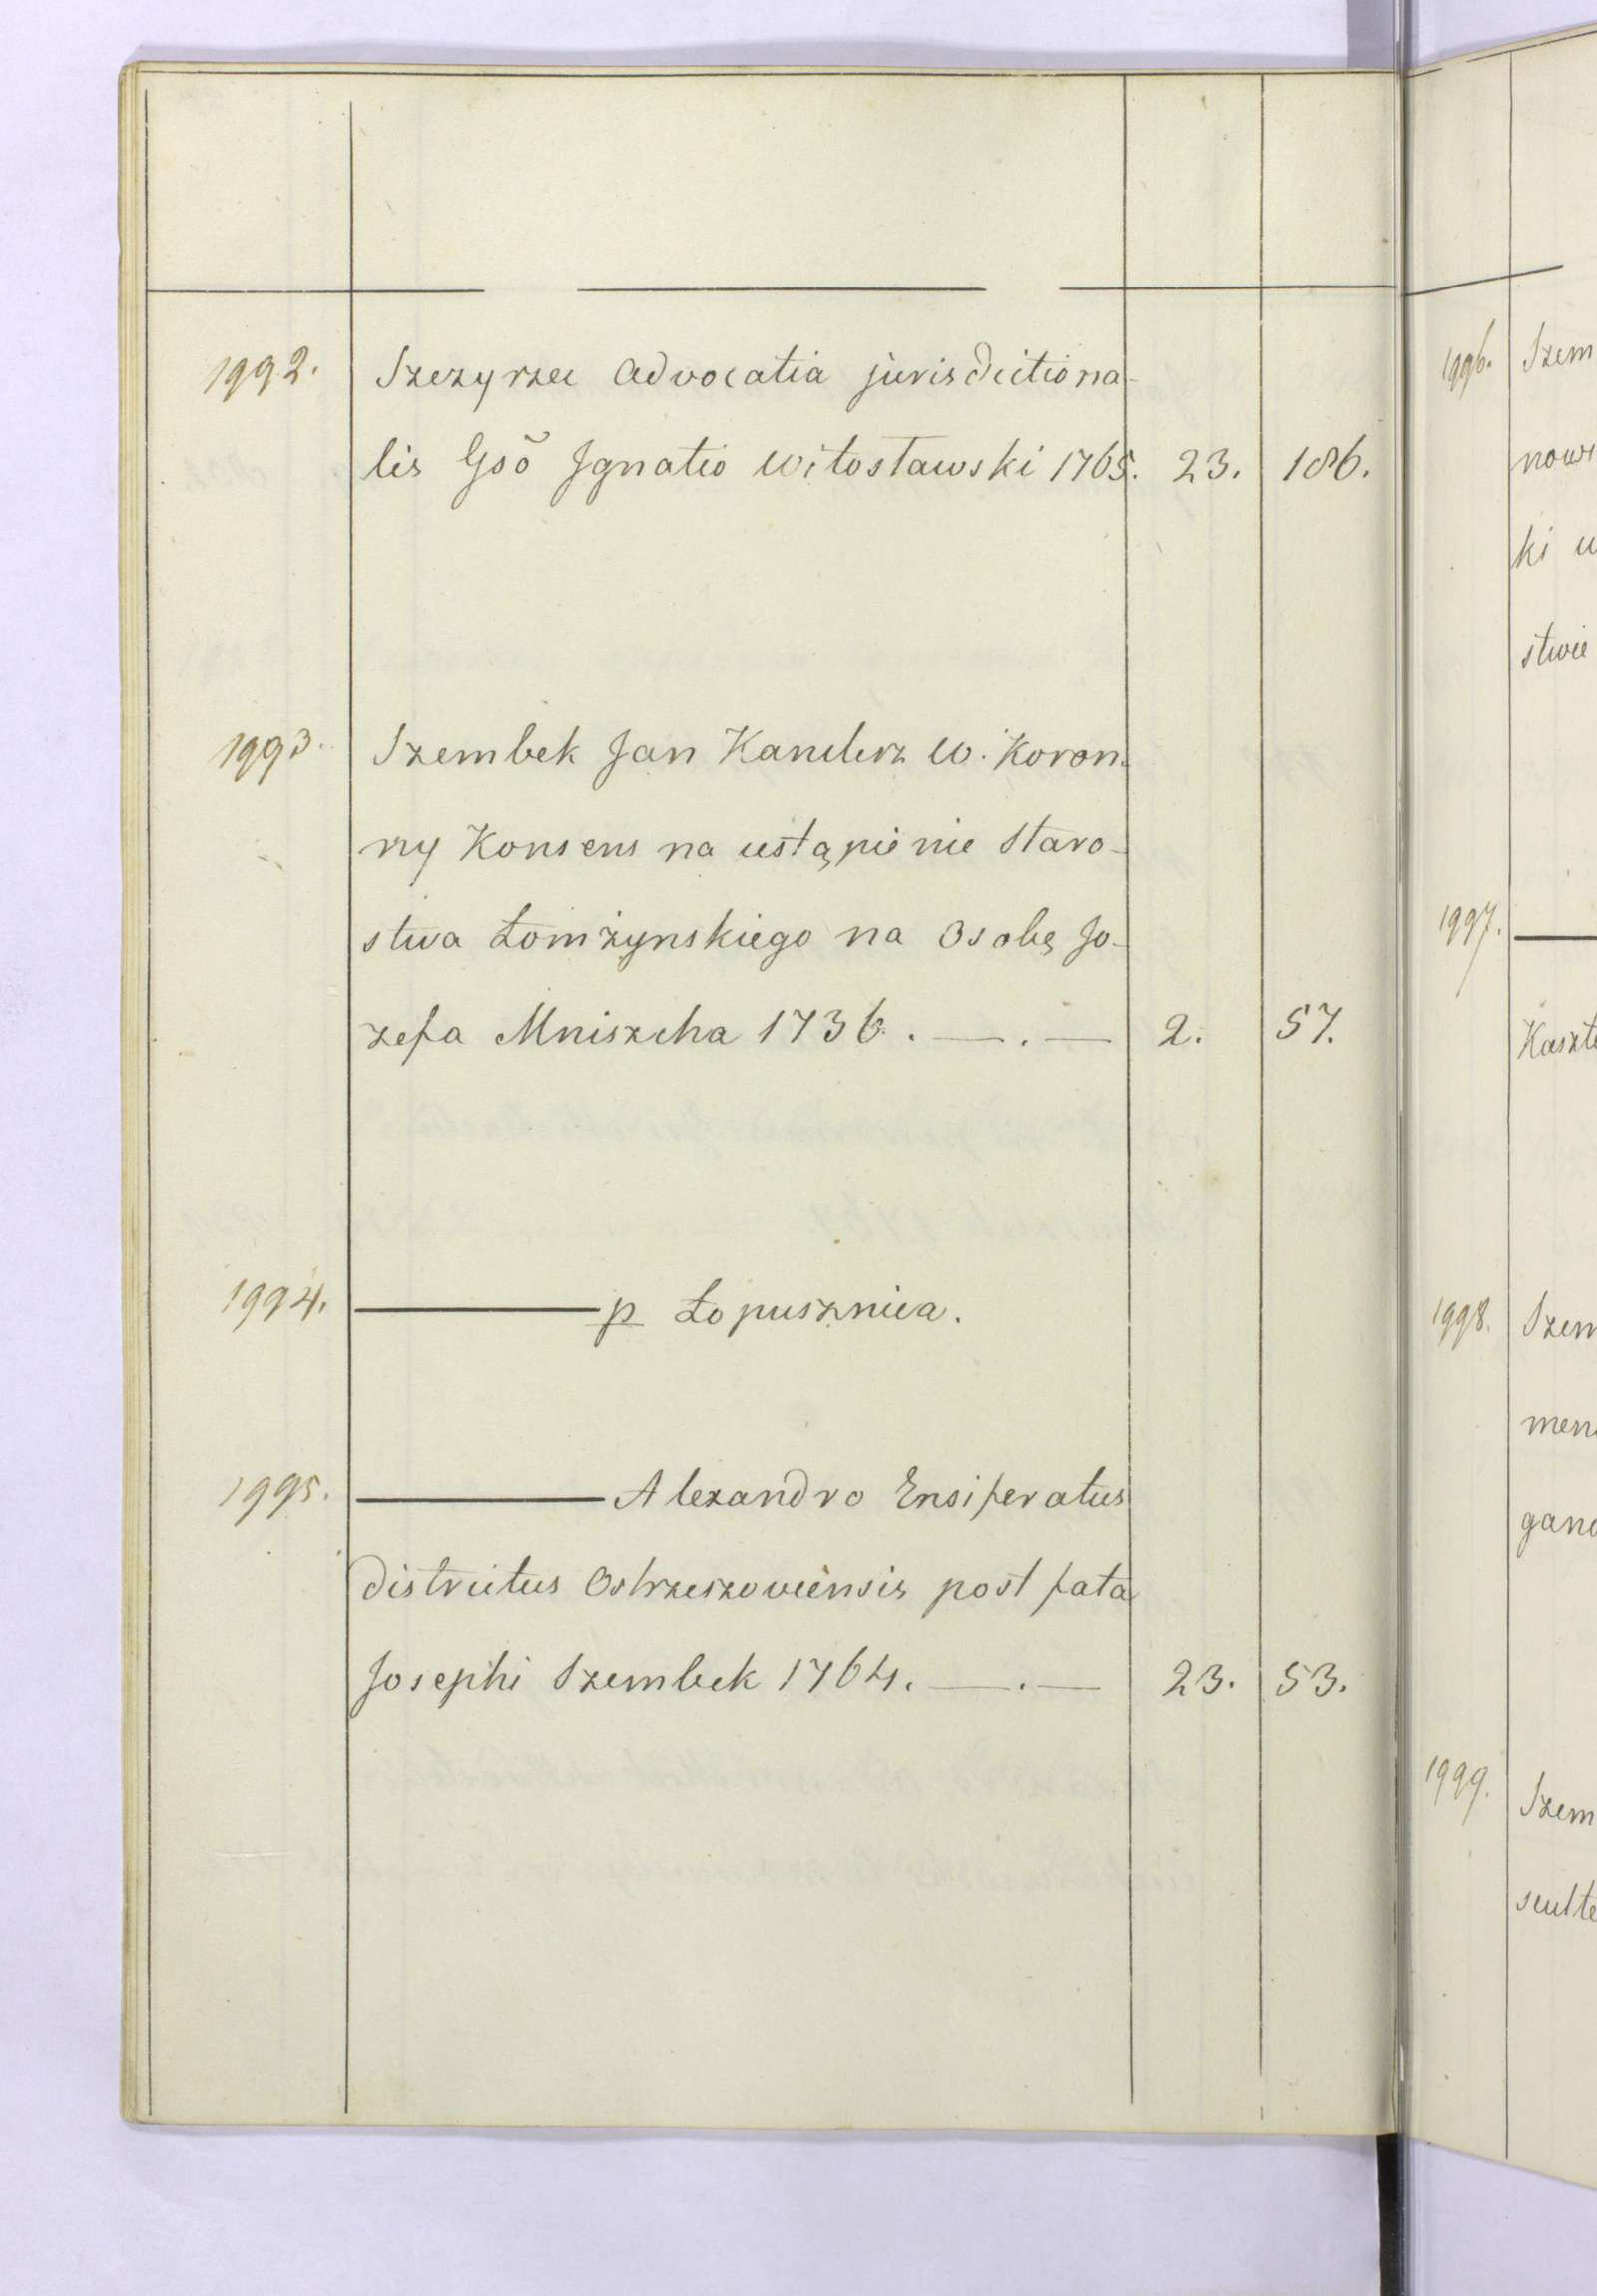 1992. Szczyrzec Advocatia jurisdictiona-
lis Gsō Ignatio Witosławski 1765. 23. 186.
1993. Szembek Jan Kanclerz W. Koron-
ny Konsens na ustąpienie Staro-
stwa Łomżynskiego na Osobę Jo-
zefa Mniszcha 1736. — . — 2. 57.
1994. ——— p Łopusznica.
1995. ——— Alexandro Ensiferatus
districtus Ostrzeszoviensis post fata
Josephi Szembek 1764. — . — 23. 53.
1996. Szem
now
ki
stwie
1997. ———
Kaszte
1998. Szem
men
gan
1999. Szem